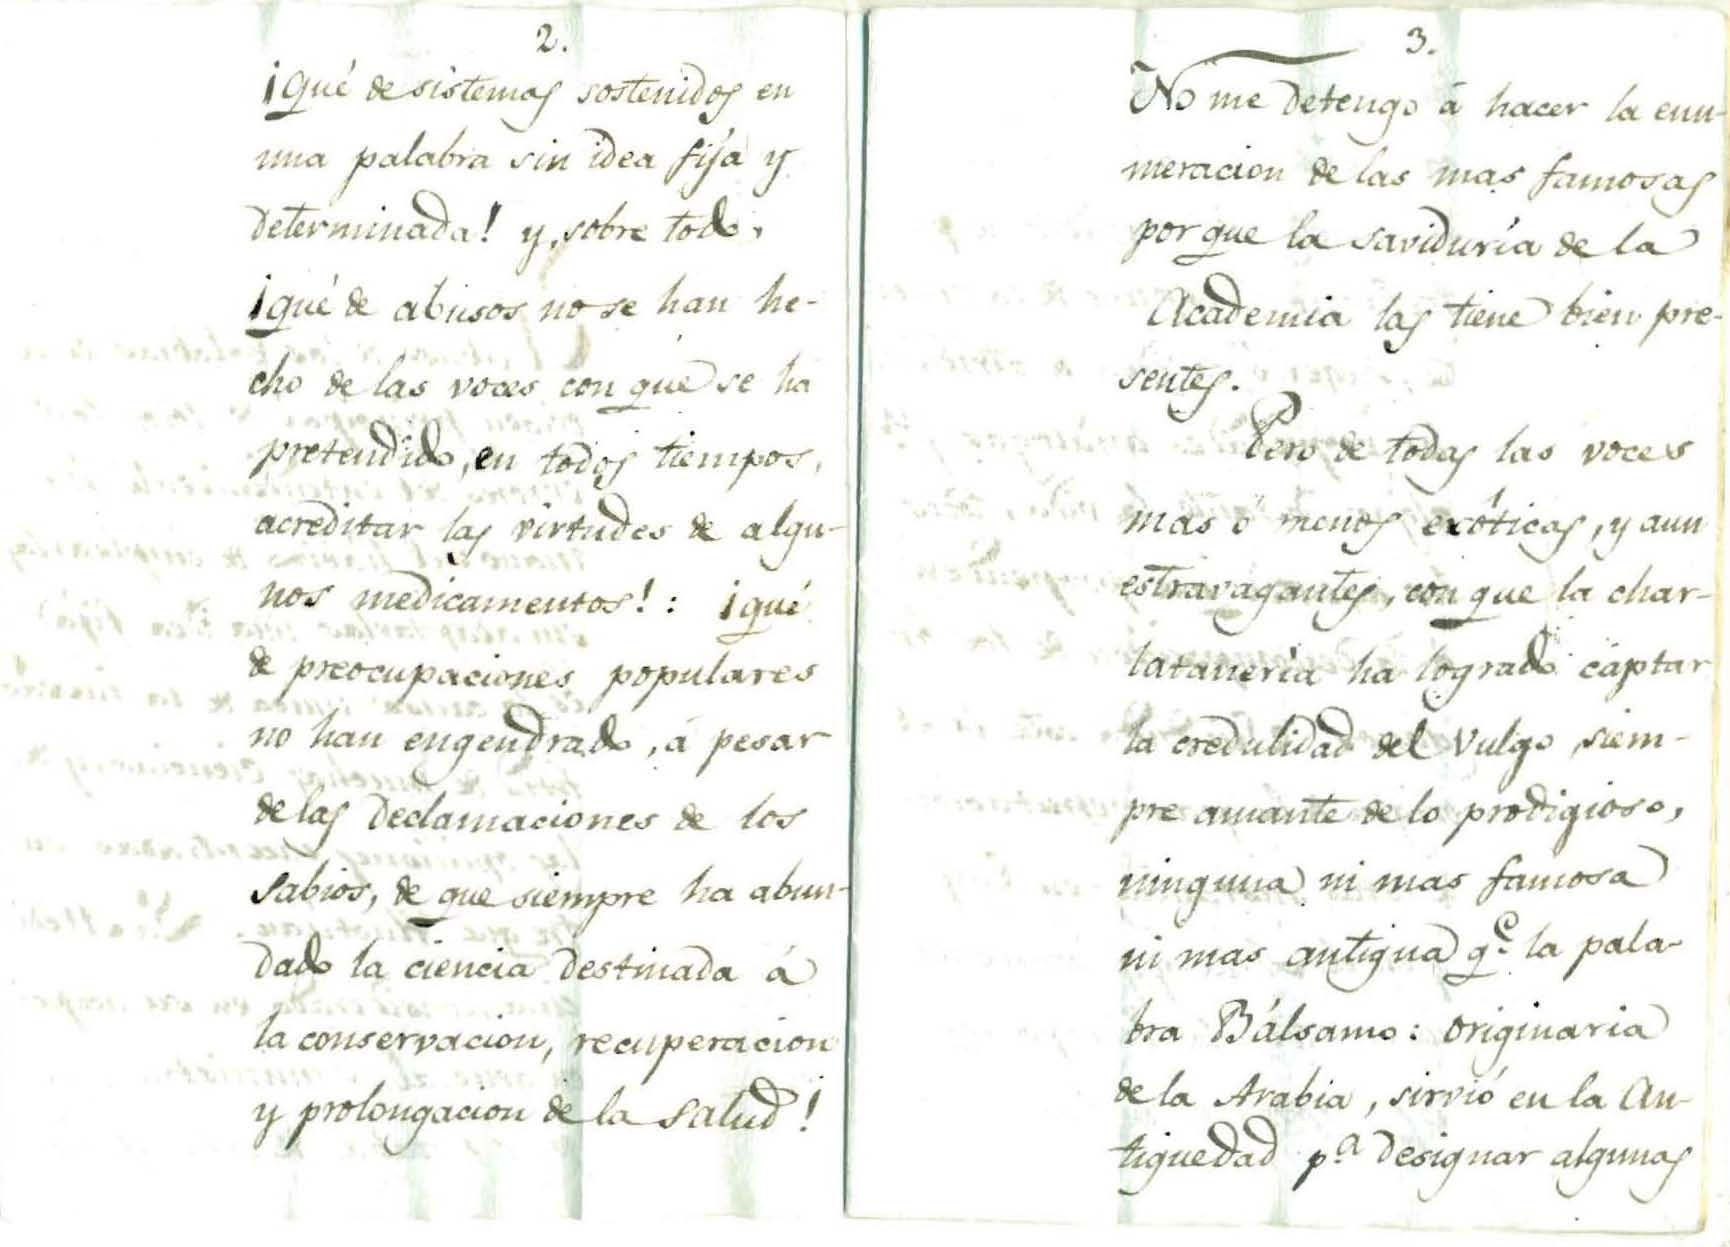 2.
¡Qué de sistemas sostenidos en
una palabra sin idea fija y
determinada! y, sobre todo,
¡qué de abusos no se han he-
cho de las voces con que se ha
pretendido, en todos tiempos,
acreditar las virtudes de algu-
nos medicamentos!: ¡qué
de preocupaciones populares
no han engendrado, á pesar
de las declamaciones de los
Sabios, de que siempre ha abun-
dado la ciencia destinada á
la conservacion, recuperacion
y prolongacion de la Salud!
3.
No me detengo á hacer la enu-
meracion de las mas famosas
porque la saviduría de la
Academia las tiene bien pre-
sentes.
Pero de todas las voces
mas ó menos exóticas, y aun
estravagantes, con que la char-
latanería ha logrado captar
la credulidad del Vulgo, siem-
pre amante de lo prodigioso,
ninguna ni mas famosa
ni mas antigua q.e la pala-
bra Bálsamo: originaria
de la Arabia, sirvió en la An-
tiguedad p.a designar algunas